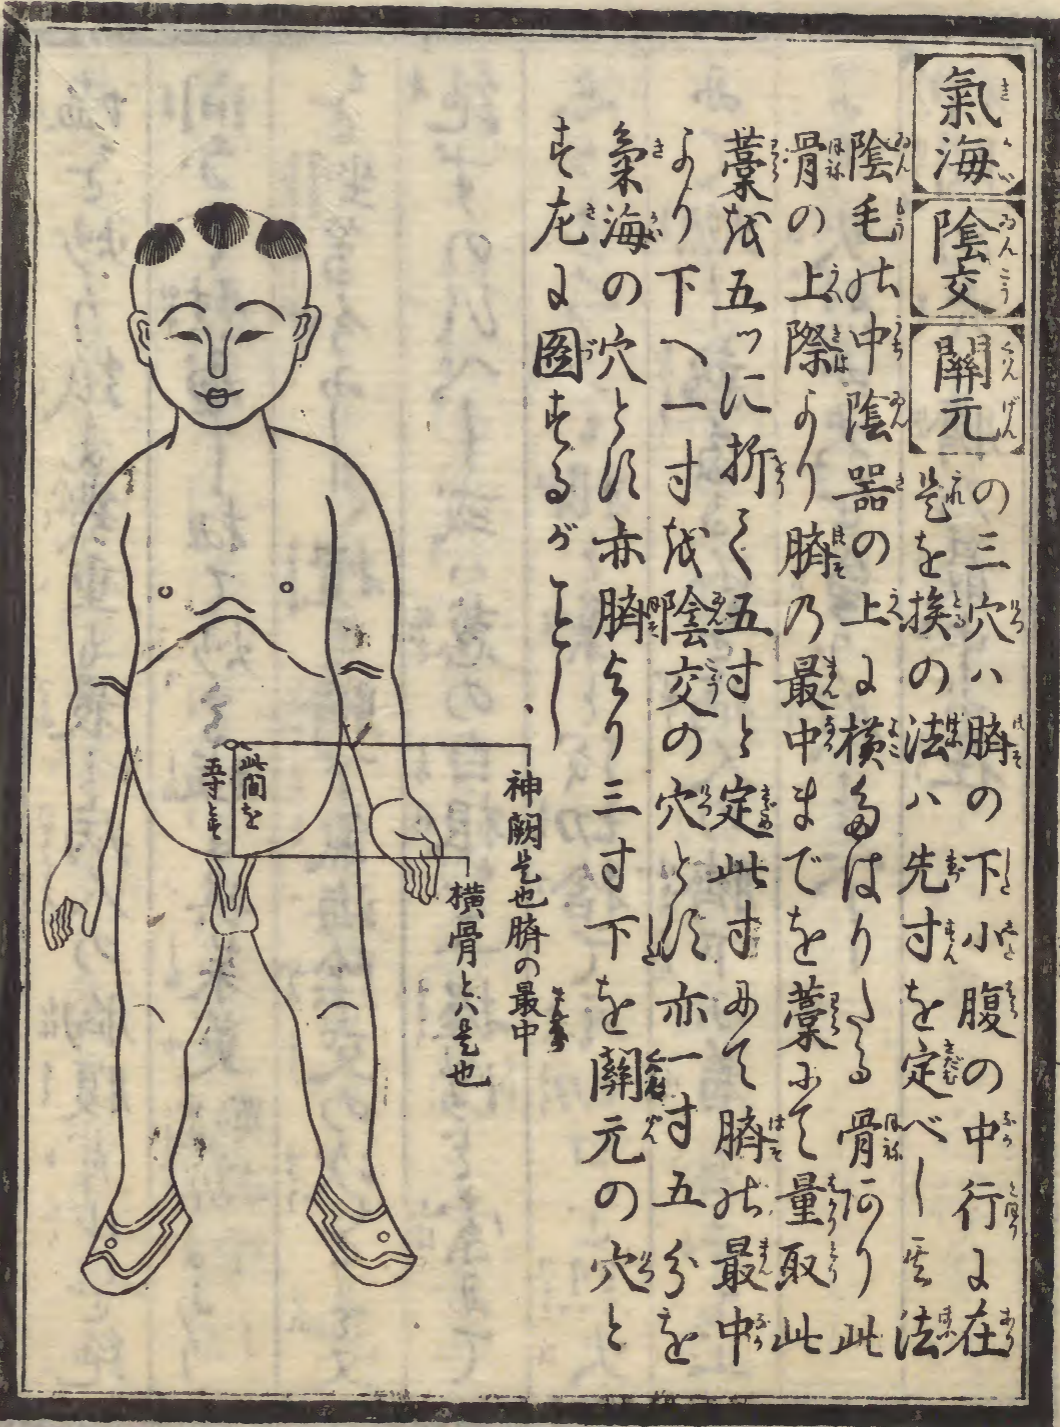 氣海 陰交 關元
の三穴ハ臍の下小腹の中行に在
是を挨の法ハ先寸を定べし其法
陰毛の中陰噐の上に横たはりたる骨あり此
骨の上際より臍の最中までを藁にて量取此
藁を五ッに折て五寸と定此寸にて臍の最中
より下へ一寸を陰交の穴とす亦一寸五分を
氣海の穴とす亦臍より三寸下を關元の穴と
す左に圖するがごとし
神闕是也臍の最中
横骨とハ是也
此間を
五寸とす